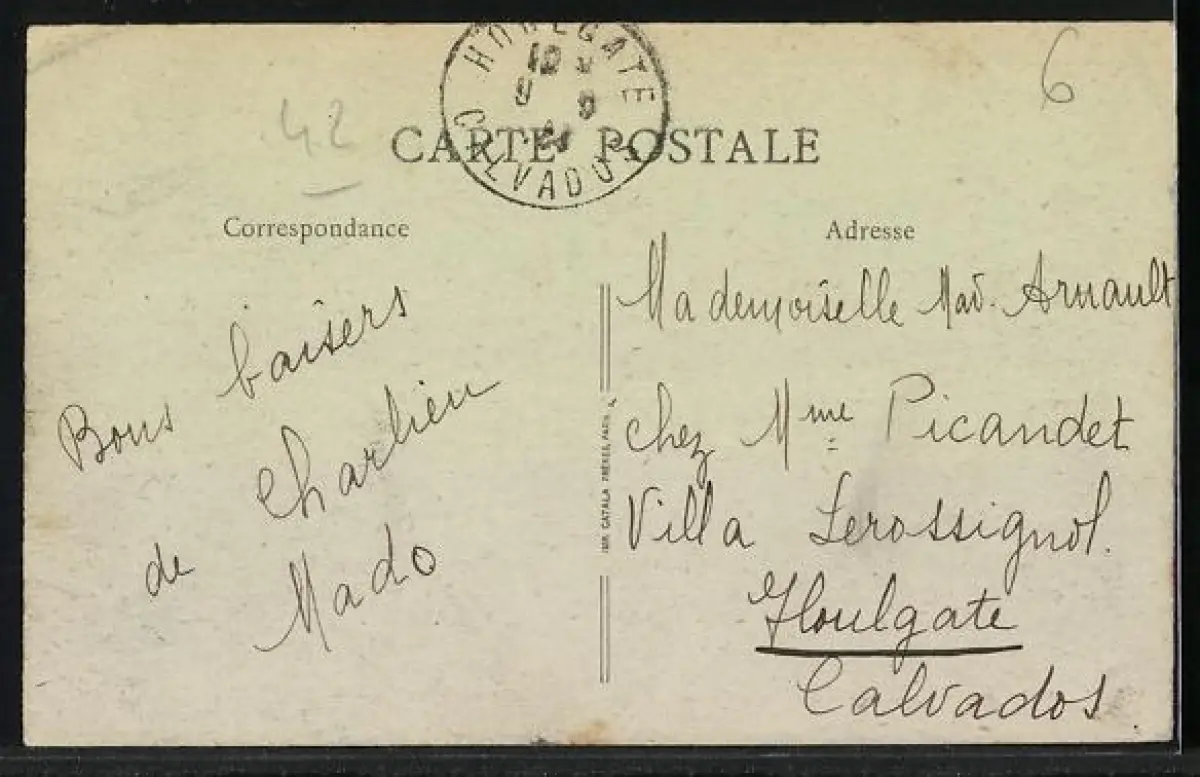 HOULGATE
CALVADOS
6
42
CARTE POSTALE
Correspondance
Adresse
Bons baisers
de Charlieu
Mado
IMP. CATALA FRÈRES, PARIS
Mademoiselle Mad. Arnault
chez Mme Picandet
Villa Lerossignol.
Houlgate
Calvados